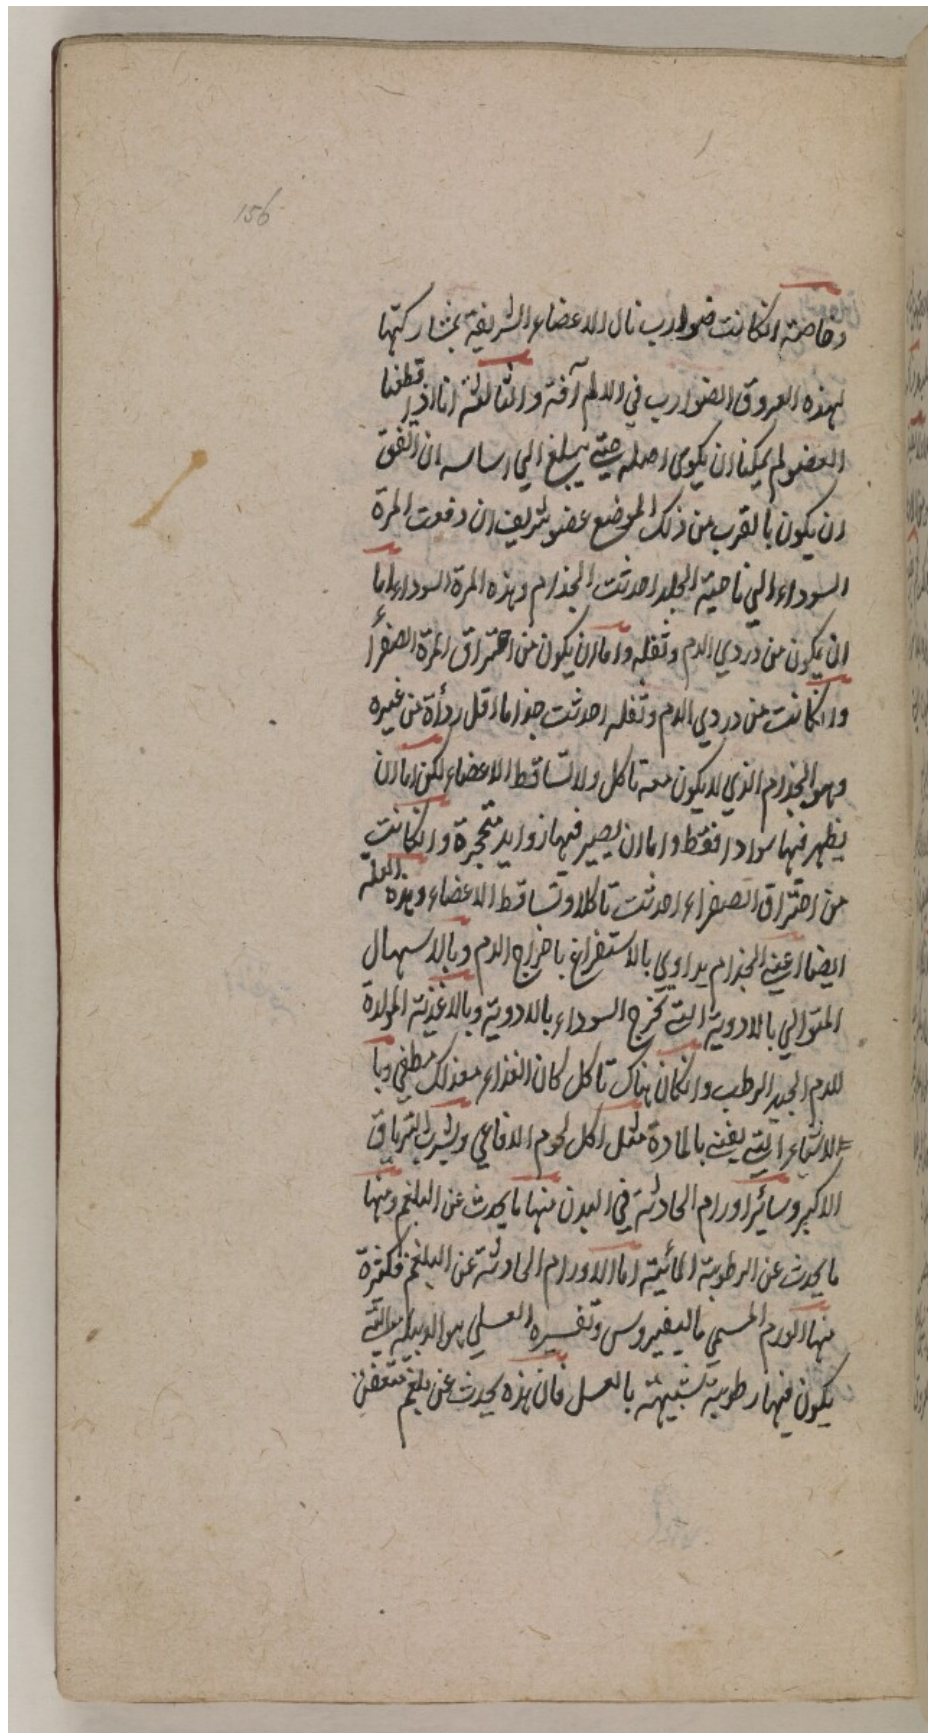 156
وخاصة انكانت ضوارب نال الاعضاء الشريفة بمشاركتها
لهذه العروق الضوارب في الالم آفة والثالثة انا اذا قطعنا
العضو لم يمكنا ان يكوي اصله حتى يبلغ الي اساسه ان اتفق
ان يكون بالقرب من ذلك الموضع عضو شريف ان دفعت المرة
السوداء الي ناحية الجلد احدثت الجذام وهذه المرة السوداء اما
ان يكون من دردي الدم وثفله واما ان يكون من احتراق المرة الصفرأ
وانكانت من دردي الدم وثفله احدثت جذاما اقل ردأة من غيره
وهو الجذام الذي لا يكون معه تاكل ولا تساقط الاعضاء لكن اما ان
يظهر فيها سوادا فقط واما ان يصير فيها زوايد متحجرة وانكانت
من احتراق الصفراء احدثت تاكلا وتساقط الاعضاء وهذه العلة
ايضا اعني الجذام يداوي بالاستفراغ باخراج الدم وبالاسهال
المتوالي بالادوية التي تخرج السوداء بالادوية وبالاغذية المولدة
للدم الجيد الرطب وانكان هناك تاكل كان الغذاء مع ذلك مطفي وبا
الاشياء التي يفني بالمادة مثل اكل لحوم الافاعي وشرب الترياق
الاكبر وسائر اورام الحادثة في البدن منها ما يحدث عن البلغم ومنها
ما يحدث عن الرطوبة المائية اما الاورام الحادثة عن البلغم فكثرة
منها الورم المسمي ماليفيروس وتفسيره العسلي هو الدبيلة التي
يكون فيها رطوبة شبيهة بالعسل فان هذه يحدث عن بلغم متعفن